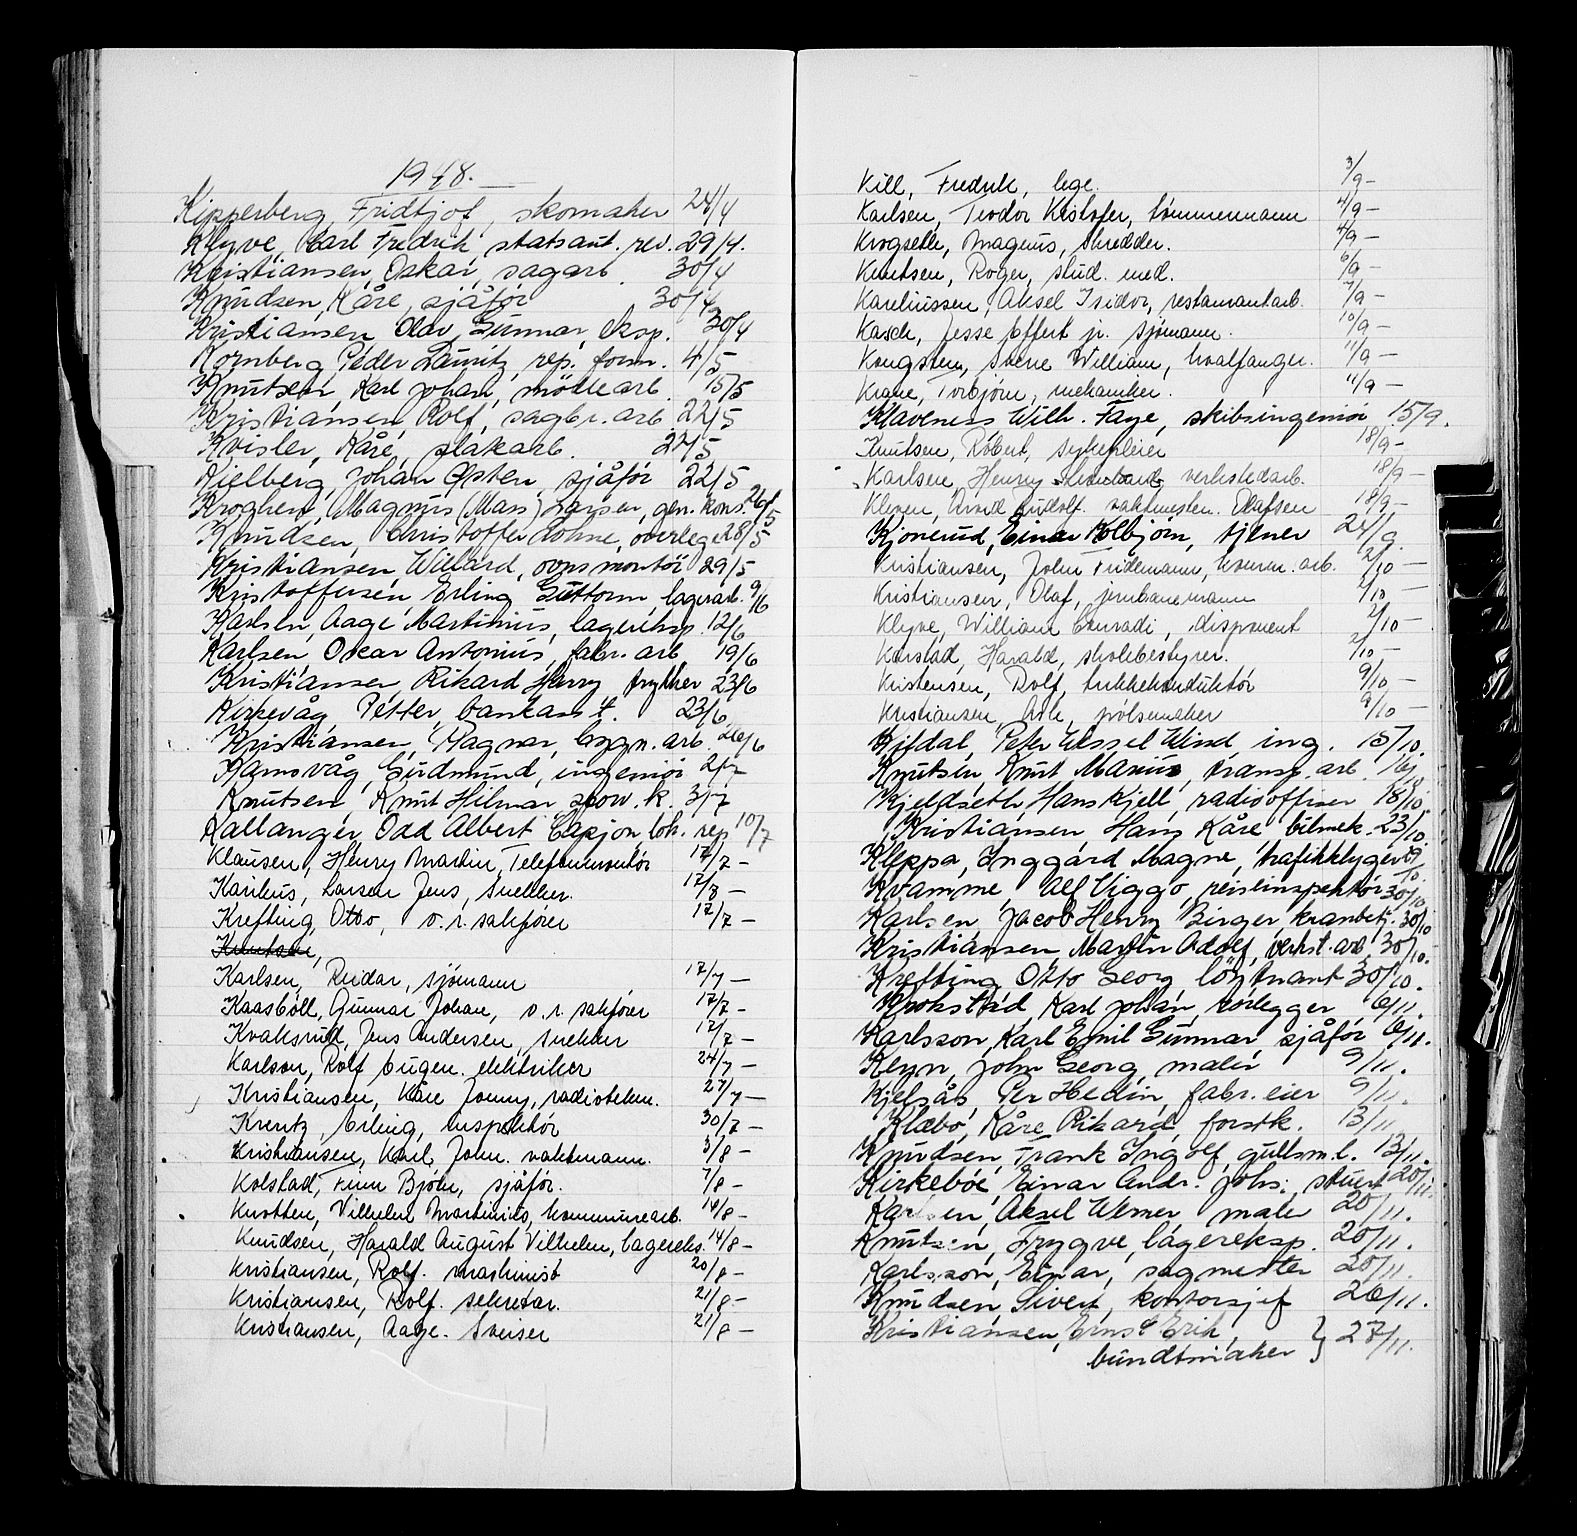 1948.
Kipperberg, Fridtjof, skomaker 24/4
Klyve, Carl Fredrik, statsaut. rev. 29/4.
Kristiansen, Oskar, sagarb. 30/4
Knudsen, Kåre, sjåfør 30/4
Kristiansen, Olav Gunnar, eksp. 30/4
Kornberg, Peder Lauritz, rep. form. 4/5
Knutsen, Karl Johan, møllearb. 15/5
Kristiansen, Rolf, sagbr. arb 22/5
Kvisler, Kåre, platearb. 22/5
Kjelberg, Johan Østen, sjåfør 22/5
Kroghen, Magnus (Mass) Larsen, gen. kons. 26/5
Knudsen, Christoffer Lohne, overlege 28/5
Kristiansen, Willard, ovnsmontør 29/5
Kristoffersen, Erling Guttorm, lagerarb. 9/6
Karlsen, Aage Martinius, lagereksp. 12/6
Karlsen, Oskar Antonius, fabr. arb. 19/6
Kristiansen, Rikard Harry trykker 23/6
Kirkevåg, Petter, bankass t. 23/6
Kristiansen, Ragnar, bygn. arb. 26/6
Kamsvåg, Gudmund, ingeniør 2/7
Knutsen, Knut Hilmar, spow. k. 3/7
Kallanger, Odd Albert Casjon, lok. rep 10/7
Klausen, Henry Martin, Telefonmontør 17/7 –
Karihus, Larsen Jens, snekker. 17/7 –
Krefting, Otto, o.r. sakfører 17/7 –
Knutsen,
Karlsen, Reidar, sjømann 17/7 –
Kaasbøll, Gunnar Johan, o.r. sakfører 17/7 –
Kvaksrud, Jens Andersen, snekker 17/7 –
Karlson, Rolf Eugen. elektriker 24/7 –
Kristiansen, Kåre Jonny, radiotekn. 27/7 –
Krentz, Erling, inspektør 30/7 –
Kristiansen, Karl John. vaktmann. 3/8 –
Kolstad, Finn Bjørn, sjåfør. 7/8 –
Knotten, Vilhelm Martinius, kommunearb. 14/8 –
Knudsen, Harald August Vilhelm, lagereks. 14/8 –
Kristiansen, Rolf. maskinist 20/8 –
Kristiansen, Rolf. sekretær. 21/8 –
Kristiansen, Aage. Sveiser 21/8 –
Kill, Fredrik, lege. 3/9 –
Karlsen, Teodor Kristofer, tømmermann 4/9 –
Krogsetle, Magnus, skredder. 4/9 –
Knutsen, Roger, stud. med. 6/9 –
Kareliussen, Aksel Isidor, restaurantarb. 7/9 –
Kasch, Jesse Effert jr. sjømann. 10/9 –
Kongsten, Sverre William, hvalfanger. 11/9 –
Krane, Torbjørn, mekaniker. 11/9 –
Klaveness, Wilh. Faye, skibsingeniør 15/9.
Knutsen, Robert, sykepleier 18/9 –
Karlsen, Henry verkstedarb. 18/9 –
Kleven, Arvid Rudolf. vaktmester. Olafsen 18/9 –
Kjønerud, Einar Kolbjørn, tjener 24/9
Kristiansen, John Fridemann, komm. arb. 2/10 –
Kristiansen, Olaf, jernbanemann 2/10 –
Klyve, William Conradi, disponent 2/10 –
Karstad, Harald, skolebestyrer. 2/10 –
Kristensen, Rolf, trikkekonduktør 9/10 –
Kristiansen, Arne, pølsemaker 9/10 –
Kifdal, Peter Wessel Wind, ing. 15/10.
Knutsen, Knut Marius, transp. arb. 16/10
Kjeldseth, Hans Kjell, radiooffiser 18/10.
Kristiansen, Hans Kåre bilmek. 23/10
Kleppa, Inggard Magne, trafikkflyger 29/10.
Kvamme, Alf Viggo, reiseinspektør 30/10
Karlsen Jacob Henry Birger, kranbetj. 30/10
Kristiansen, Martin Adolf, verkst. arb. 30/10.
Krefting, Otto Georg, løytnant 30/10.
Krokstad, Karl Johan, rørlegger 6/11.
Karlsson, Karl Emil Gunnar, sjåfør 6/11.
Keyn, John Georg, maler 9/11.
Kjelsås, Per Hedin, fabr. eier 9/11.
Klæbo, Kåre Rikard, forstk. 13/11
Knudsen, Frank Ingolf, gullsm. l. 13/11.
Kirkebøe, Einar Andr. Johs., stuert 20/11.
Karlsen, Aksel Werner, maler 20/11.
Knutsen, Trygve, lagereksp. 20/11.
Karlsson, Einar, sagmester 20/11.
Knudsen, Sivert, kontorsjef 26/11.
Kristiansen, Ernst Erik, } 27/11.
buntmaker